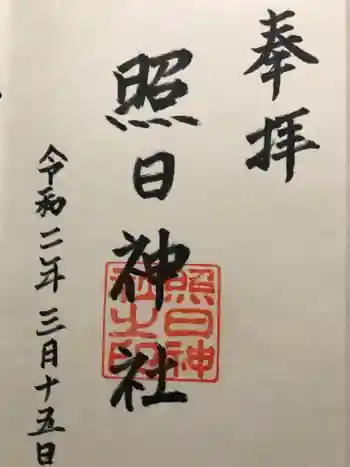 奉拝
照日神社
照日神
社之印
令和二年三月十五日